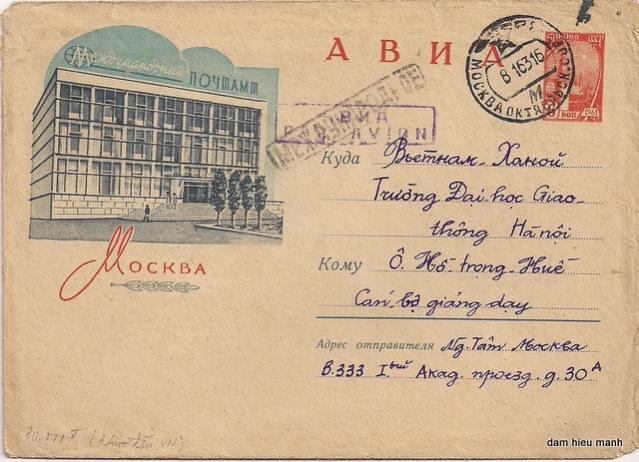 Международный
ПОЧТАМТ
АВИА
ПОЧТА СССР
КОП 1961
8 1 63 16
МОСКВА ОКТЯБРЬСК
МЕЖДУНАРОДНОЕ
АВИА
PAR AVION
Куда Вьетнам - Ханой
Trường Đại học Giao-
thông Hà nội
Кому Ô. Hồ trọng Huế
Cán bộ giảng dạy
Москва
Адрес отправителя Ng. Tâm Москва
В.333 Iый Акад. проезд. д. 30А
80.000đ
dam hieu manh